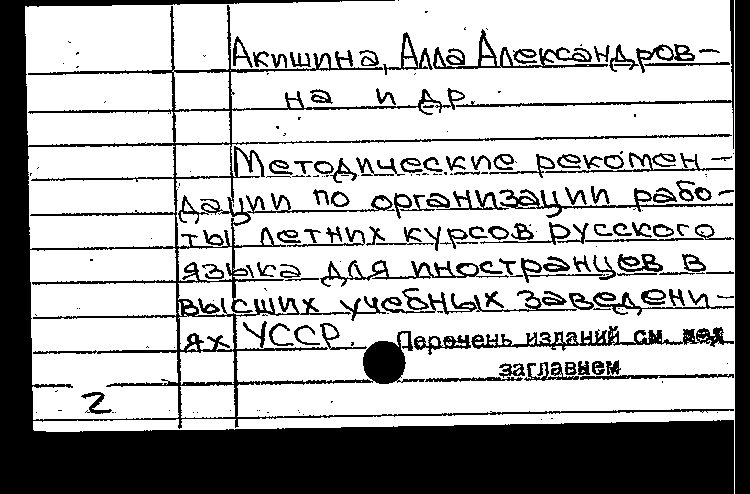 Акишина, Алла Александров-
на и др.
Методические рекомен-
дации по организации рабо-
ты летних курсов русского
языка для иностранцев в
высших учебных заведени-
ях УССР. Перечень изданий см. под
заглавием
2